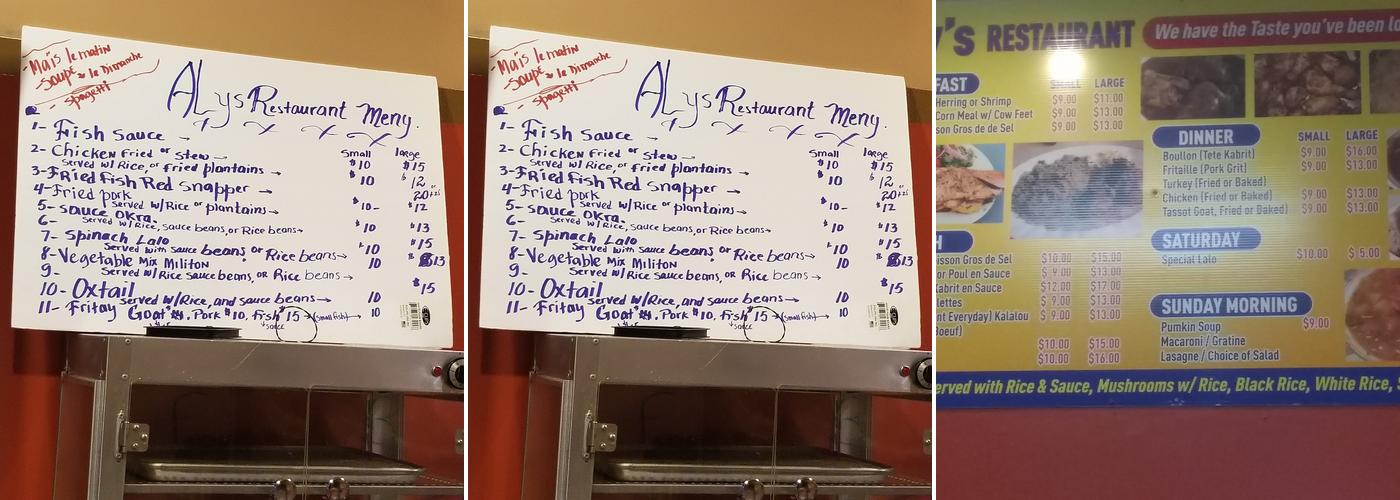 Maïs le matin
-Soupe le Dimanche
- spagetti
ALys Restaurant Meny.
1- Fish Sauce →
Small large
2- Chicken Fried or Stew → $10 $15
Served w/ Rice, or fried plantains →
3-Fried fish Red Snapper → $10 $12
4-Fried pork 20
Served w/Rice or plantains → $10- $12
5- Sauce OKra.
Served w/Rice, sauce beans, or Rice beans → $10 $13
6-
7- Spinach Lalo $15
Served with Sauce beans, or Rice beans → $10
8-Vegetable Mix Militon 10 $13
Served w/Rice Sauce beans, or Rice beans →
9-
10- Oxtail $15
Served w/Rice, and sauce beans → 10
11- Fritay Goat, Pork $10, Fish $15 → (small fish) → 10
sauce
Maïs le matin
-Soupe le Dimanche
- spagetti
ALys Restaurant Meny.
1- Fish Sauce →
Small large
2- Chicken Fried or Stew → $10 $15
Served w/ Rice, or fried plantains →
3-Fried fish Red Snapper → $10 $12
4-Fried pork 20
Served w/Rice or plantains → $10- $12
5- Sauce OKra.
Served w/Rice, sauce beans, or Rice beans → $10 $13
6-
7- Spinach Lalo $15
Served with Sauce beans, or Rice beans → $10
8-Vegetable Mix Militon 10 $13
Served w/Rice Sauce beans, or Rice beans →
9-
10- Oxtail $15
Served w/Rice, and sauce beans → 10
11- Fritay Goat, Pork $10, Fish $15 → (small fish) → 10
sauce
y's RESTAURANT
We have the Taste you've been lo
FAST SMALL LARGE
Herring or Shrimp $9.00 $11.00
Corn Meal w/ Cow Feet $9.00 $13.00
sson Gros de Sel $9.00 $13.00
DINNER SMALL LARGE
Boullon (Tete Kabrit) $9.00 $16.00
Fritaille (Pork Grit) $9.00 $13.00
Turkey (Fried or Baked)
Chicken (Fried or Baked) $9.00 $13.00
Tassot Goat, Fried or Baked) $9.00 $13.00
H
isson Gros de Sel $10.00 $15.00
or Poul en Sauce $ 9.00 $13.00
Kabrit en Sauce $12.00 $17.00
lettes $ 9.00 $13.00
nt Everyday) Kalalou $ 9.00 $13.00
Boeuf)
$10.00 $15.00
$10.00 $16.00
SATURDAY
Special Lalo $10.00 $ 5.00
SUNDAY MORNING
Pumkin Soup $9.00
Macaroni / Gratine
Lasagne / Choice of Salad
erved with Rice & Sauce, Mushrooms w/ Rice, Black Rice, White Rice, S